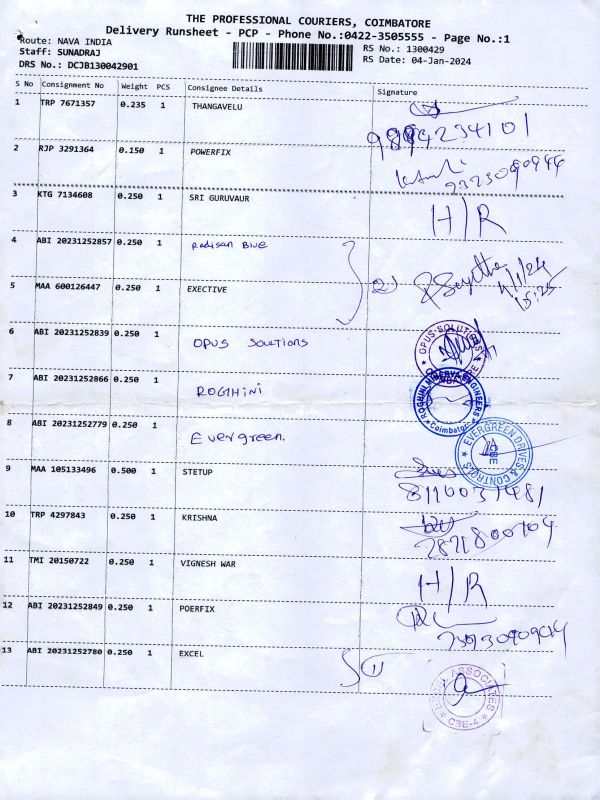 THE PROFESSIONAL COURIERS, COIMBATORE
Delivery Runsheet - PCP - Phone No.:0422-3505555 - Page No.:1
Route: NAVA INDIA
RS No.: 1300429
Staff: SUNADRAJ
RS Date: 04-Jan-2024
DRS No.: DCJB130042901
S No Consignment No Weight PCS Consignee Details Signature
1 TRP 7671357 0.235 1 THANGAVELU
2 RJP 3291364 0.150 1 POWERFIX
3 KTG 7134608 0.250 1 SRI GURUVAUR H/R
4 ABI 20231252857 0.250 1 Radisan Blue
5 MAA 600126447 0.250 1 EXECTIVE 2) 4/1/24
15:25
6 ABI 20231252839 0.250 1 OPUS SOUTIONS OPUS-SOLUTIONS
7 ABI 20231252866 0.250 1 ROGIHINI ROGHINI MINERVA ENGINEERS Coimbatore
8 ABI 20231252779 0.250 1 Evergreen. EVERGREEN DRIVES & CONTROLS
9 MAA 105133496 0.500 1 STETUP 8110031481
10 TRP 4297843 0.250 1 KRISHNA
11 TMI 20150722 0.250 1 VIGNESH WAR H/R
12 ABI 20231252849 0.250 1 POERFIX
13 ABI 20231252780 0.250 1 EXCEL ASSOCIATES CBE-4